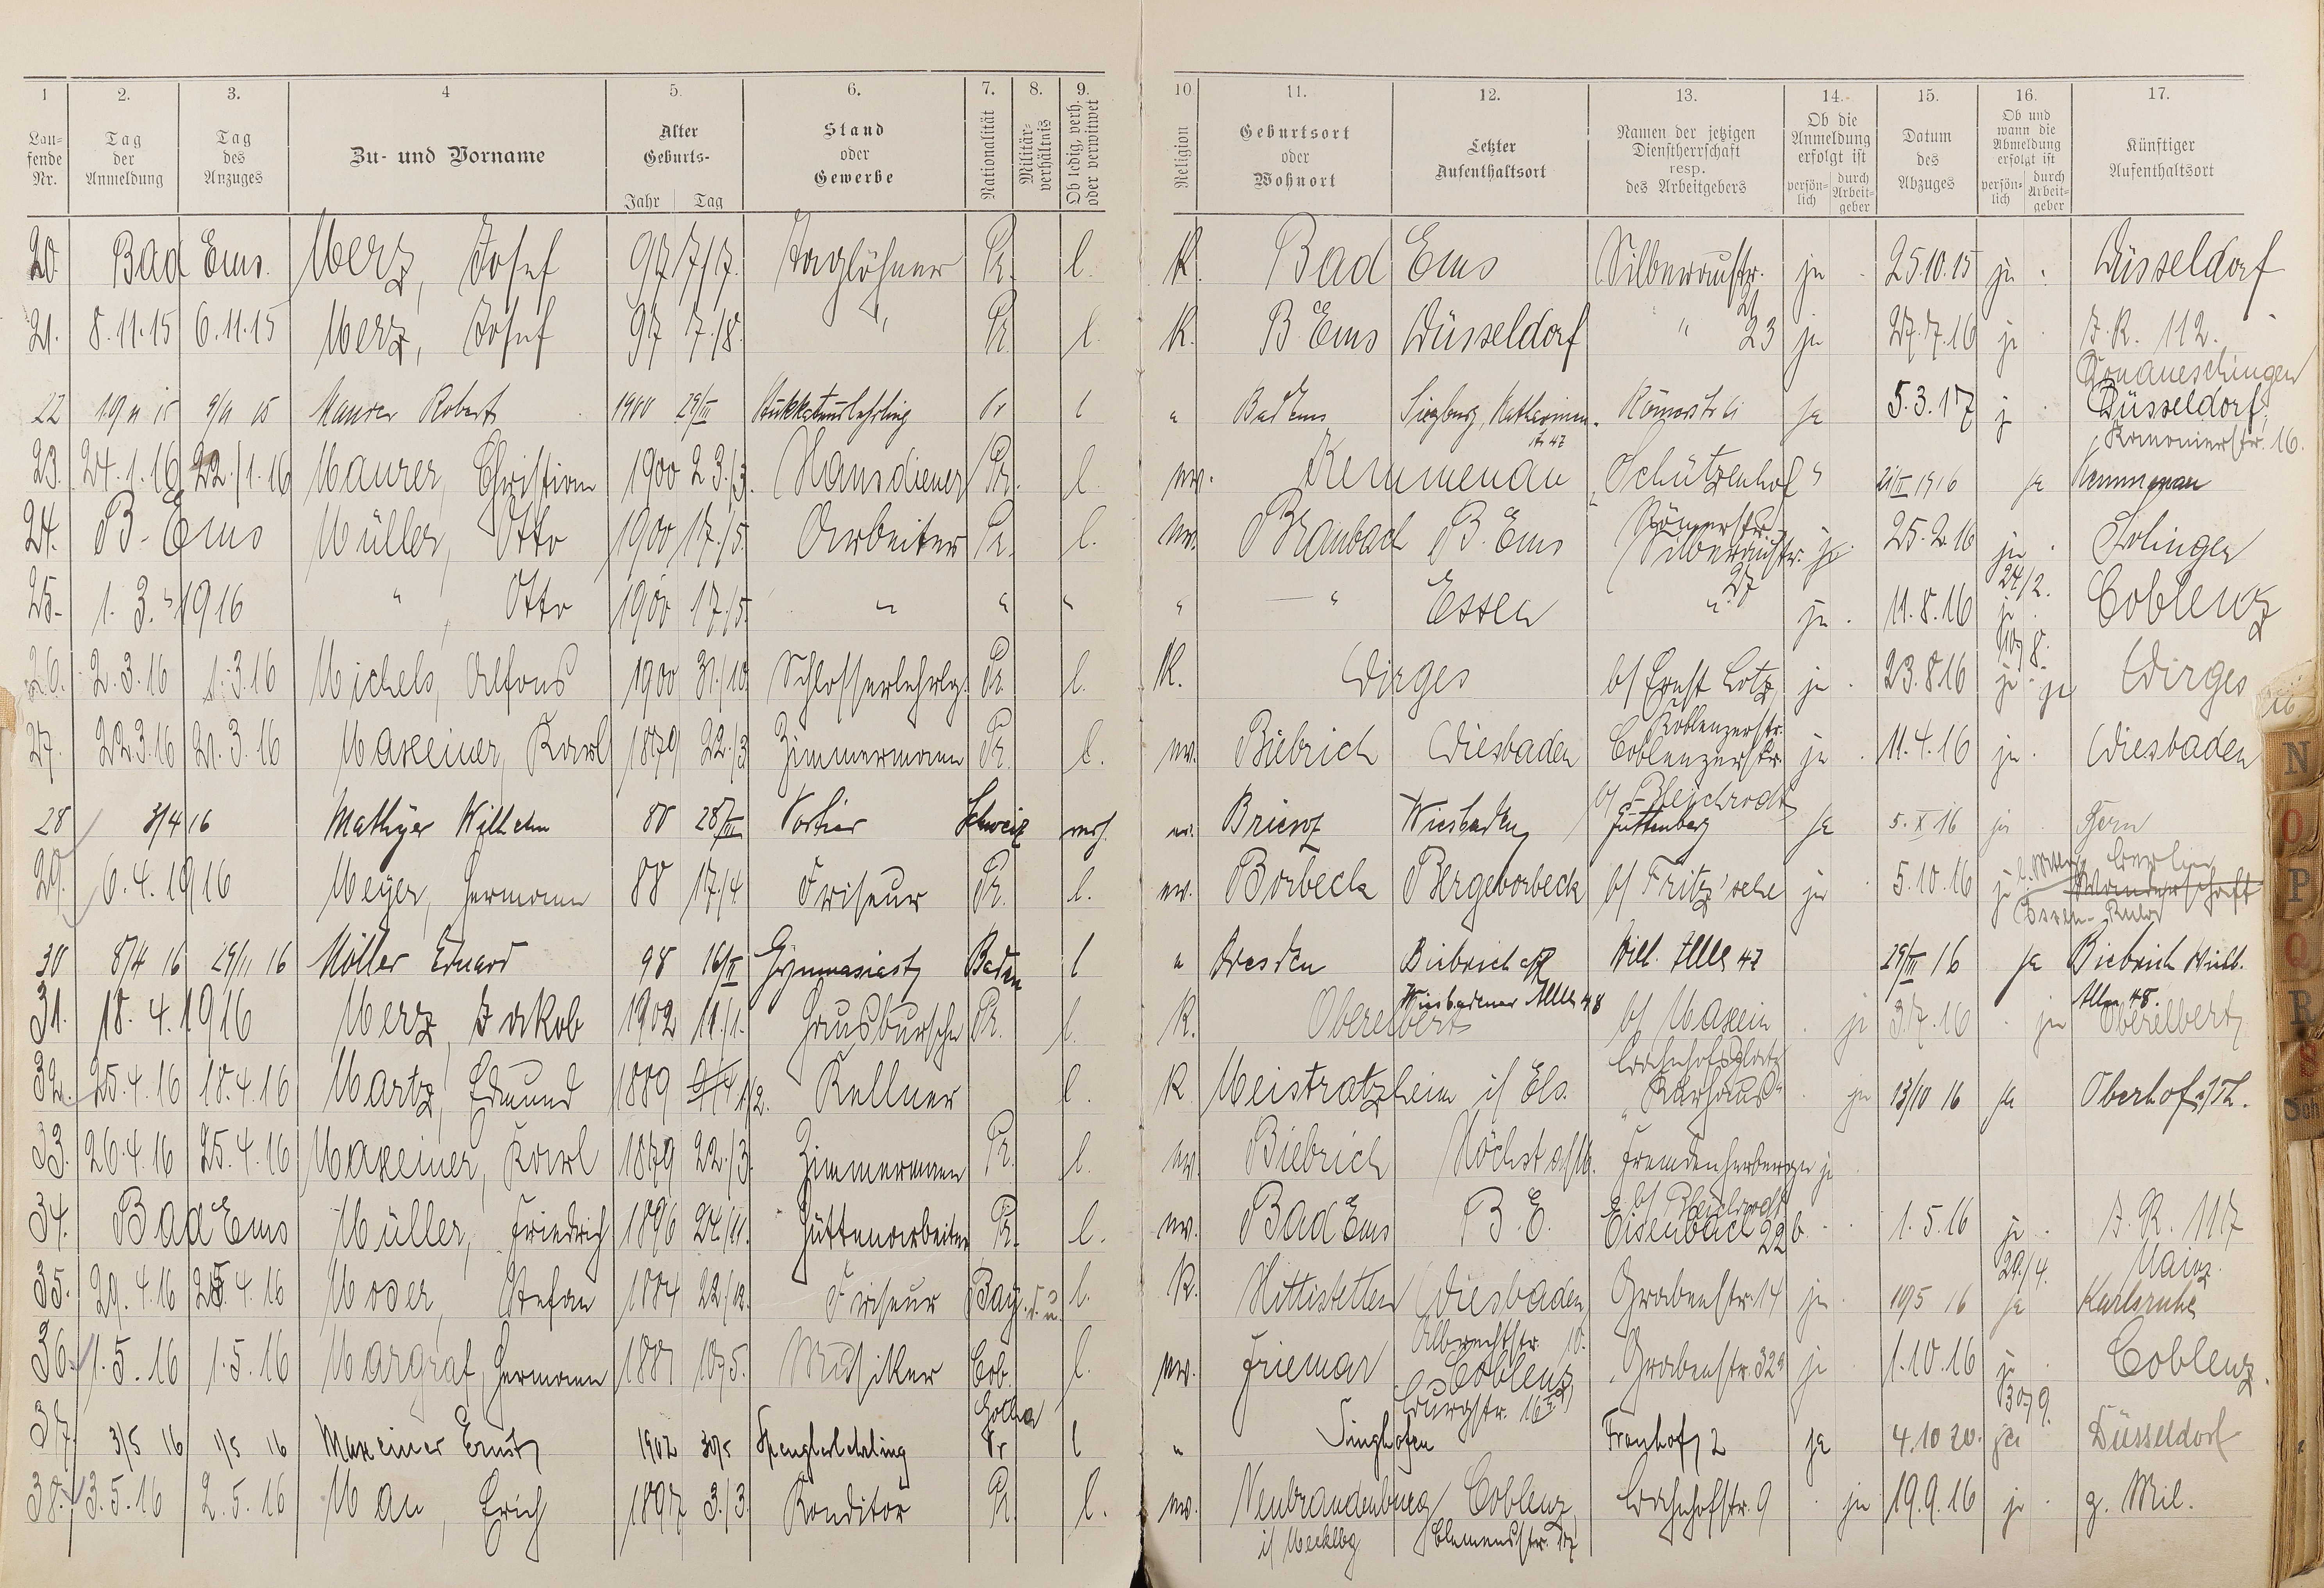 1 2. 3. 4 5. 6. 7. 8. 9. 10 11. 12. 13. 14. 15. 16. 17.
Lau-fende Nr. Tag der Anmeldung Tag des Anzuges Zu- und Vorname Alter Geburts- Jahr Tag Stand oder Gewerbe Nationalität Militär-verhältnis Ob ledig, verh. oder verwitwet Religion Geburtsort oder Wohnort Letzter Aufenthaltsort Namen der jetzigen Dienstherrschaft resp. des Arbeitgebers Ob die Anmeldung erfolgt ist persön-lich durch Arbeit-geber Datum des Abzuges Ob und wann die Abmeldung erfolgt ist persön-lich durch Arbeit-geber Künftiger Aufenthaltsort
20. Bad Ems. Merz, Josef 97 7/7. Taglöhner Pr. l. K. Bad Ems Silberaustr. 21 ja 25.10.15 ja Düsseldorf
21. 8.11.15 6.11.15 Merz, Josef 97 7./8. " Pr. l. K. B. Ems Düsseldorf " 23 ja 27.7.16 ja J.R. 112. Donaueschingen
22 19 11 15 9/11 15 Maurer Robert 1900 29/III Stukkateurlehrling Pr l " Bad Ems Siegburg, Katharinen-str 47 Römerstr ja 5.3.17 j Düsseldorf, Kanonierstr. 16.
23. 24.1.16 22./1.16 Maurer, Christian 1900 23./3. Hausdiener Pr. l. ev. Kemmenau "Schützenhof" Römerstr. 21/II 1916 ja Kemmenau
24. B. Ems Müller, Otto 1900 17./5. Arbeiter Pr. l. ev. Brambach B. Ems Silberaustr. 27 ja 25.2.16 ja 24/2. Solingen
25. 1.3. 1916 " Otto 1900 17./5. " " " " " Essen " ja 11.8.16 ja 10/8. Coblenz
26. 2.3.16 1.3.16 Michels, Alfons 1900 31./10. Schlosserlehrlg. Pr. l. K. Wirges b/ Ernst Lotz, Koblenzerstr. ja 23.8.16 ja ja Wirges
27. 22.3.16 21.3.16 Maxeiner, Karl 1879 22./3 Zimmermann Pr. l. ev. Biebrich Wiesbaden Coblenzerstr. b/ Bleichrodt ja 11.4.16 ja Wiesbaden
28 3/4 16 Mathyer Wilhelm 80 28/III Portier Schweiz verh. ev. Brienz Wiesbaden Guttenberg ja 5. X 16 ja Bern
29. 6.4.1916 Meyer, Hermann 88 17./4 Friseur Pr. l. ev. Borbeck Bergeborbeck b/ Fritzsche ja 5.10.16 ja Berlin Wanderschaft Essen-Ruhr
30 8/4 16 29/11 16 Möller Eduard 98 16/II Gymnasiast Baden l " Dresden Biebrich a/R Wiesbadener Allee 48 Wilh. Allee 47 29/III 16 ja Biebrich Wiesb. Allee 48.
31. 18.4.1916 Merz, Jakob 1902 11./1. Hausbursche Pr. l. K. Oberelbert b/ Maxein Bahnhofsplatz ja 3.7.16 ja Oberelbert
32. 25.4.16 18.4.16 Martz, Edmund 1889 1/2. Kellner l. K. Meistratzheim i/ Els. "Kurhaus" ja 13/10 16 ja Oberhof i/Th.
33. 26.4.16 25.4.16 Maxeiner, Karl 1879 22./3. Zimmermann Pr. l. ev. Biebrich Höchst a/M. Fremdenherberge b/ Bleichrodt ja
34. Bad Ems Müller, Friedrich 1896 24./11. Hüttenarbeiter Pr. l. ev. Bad Ems B. E. Eisenbach 22b 1.5.16 ja 29./4. J.R. 117 Mainz
35. 29.4.16 25.4.16 Moser, Stefan 1884 22./12. Friseur Bay. d.u. l. K. Hittistetten Wiesbaden, Albrechtstr. 10. Grabenstr. 14 ja 19/5 16 ja Karlsruhe
36. 1.5.16 1.5.16 Margraf, Hermann 1887 10/5. Musiker Cob. Gotha l. ev. Friemar Coblenz, Burgstr. 16 Grabenstr. 32a ja 1.10.16 ja 30/9. Coblenz.
37. 3/5 16 1/5 16 Maxeiner Ernst 1902 30/5 Spenglerlehrling Pr l " Singhofen Fronhof 2 ja 4.10 20. ja Düsseldorf
38. 3.5.16 2.5.16 Mau, Erich 1897 3./3. Konditor Pr. l. ev. Neubrandenburg i/ Mecklbg Coblenz, Clemensstr. Bahnhofstr. 9 ja 19.9.16 ja z. Mil.
N
O
P
Q
R
S
Sch